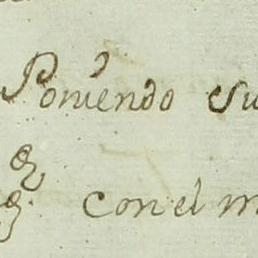 Poniendo su
con el m